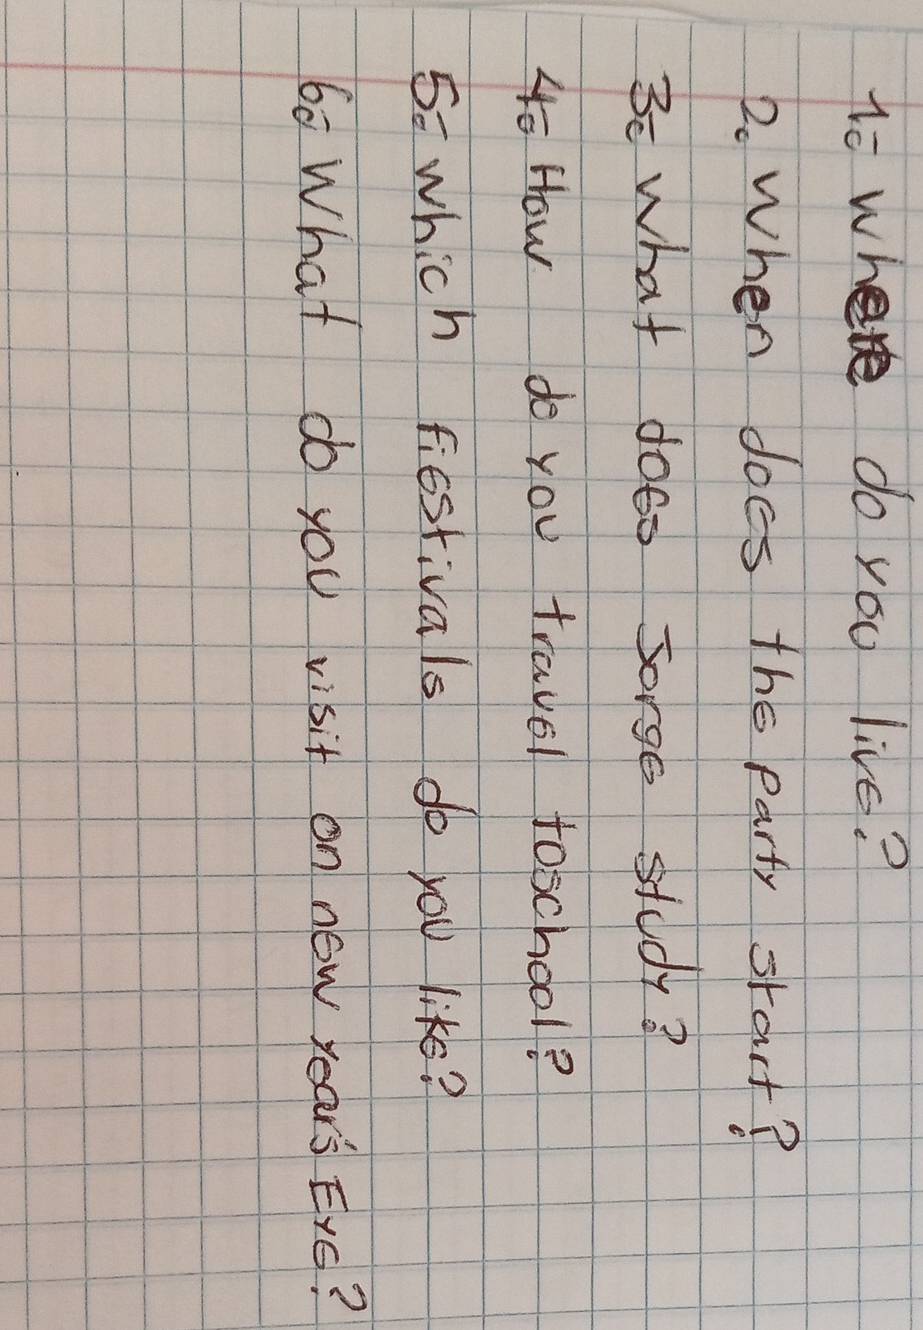 1.- Where do you live?
2. When does the party start?
3.- what does Jorge study?
4.- How do you travel toschool?
5.- which fiestivals do you like?
6.- What do you visit on new year's Eve?